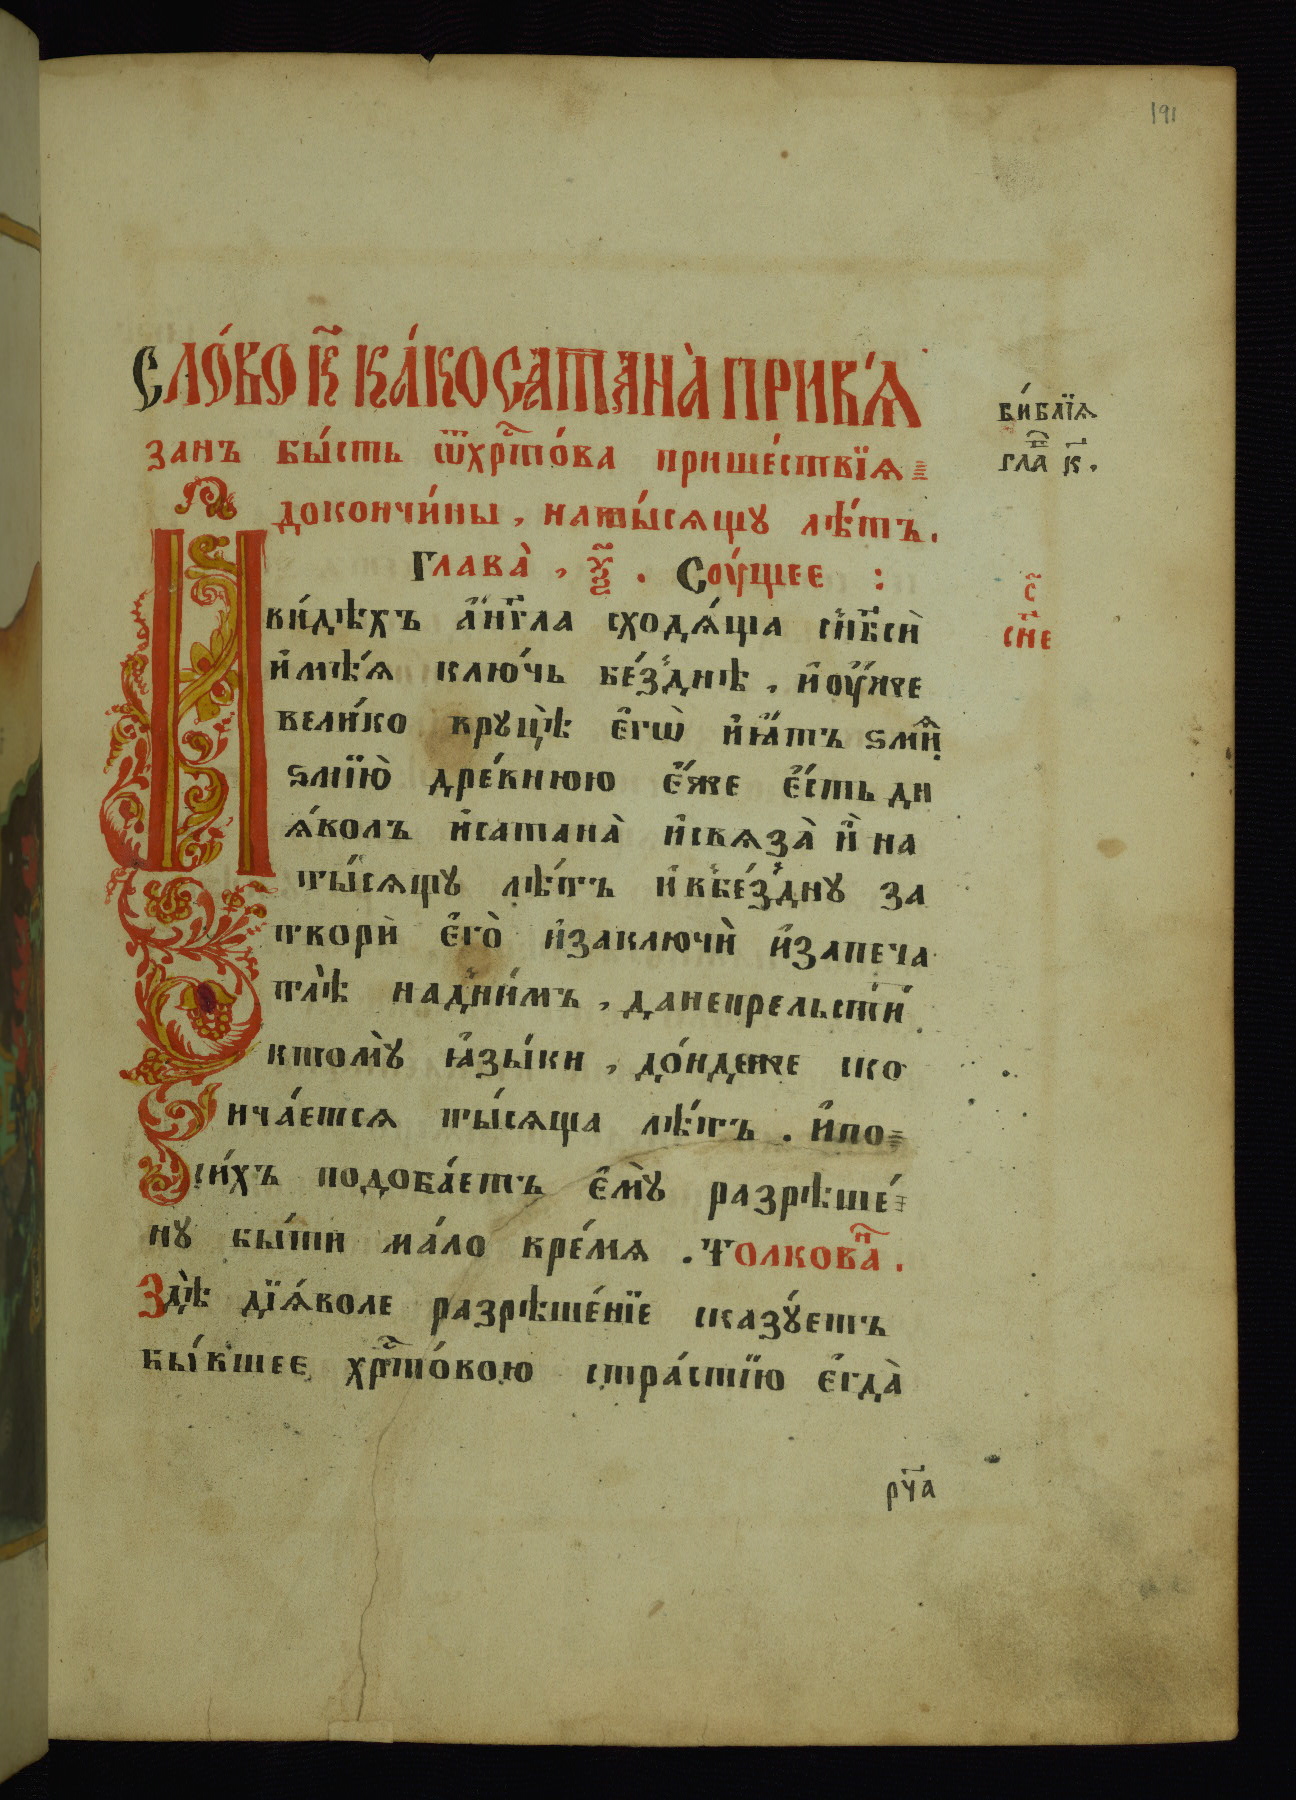 191
Сло́во к҃ ка́ко сатана̀ привѧ́
занъ бы́сть ѿ хрⷭ҇то́ва прише́ствїѧ
до кончи́ны, на ты́сѧщꙋ лѣ́тъ.
Глава̀, ѯ҃. Сѹ́щее :
И ви́дѣхъ а҆́нг҃ла сходѧ́ща с̾ нб҃сѝ
и҆мѣ́ѧ ключь бе́зднѣ, и҆ ѹ҆́же
вели́ко в рꙋцѣ̀ є҆гѡ̀ и҆ ꙗ҆́тъ ѕмі́ѧ
ѕмїю̀ дре́внюю є҆́же є҆́сть ди
ѧ́волъ и҆ сатана̀ и҆ свѧза̀ и҆̀ на
ты́сѧщꙋ лѣ́тъ и҆ в̾ бе́зднꙋ за
творѝ є҆го̀ и҆ заключѝ и҆ запеча
тлѣ̀ над̾ ни́мъ, да не прельсти́тъ
ктомꙋ̀ ꙗ҆зы́ки, до́ндеже ско
нча́етсѧ ты́сѧща лѣ́тъ. и҆ по
си́хъ подоба́етъ є҆мꙋ̀ разрѣше́
нꙋ бы́ти ма́ло вре́мѧ. Толкова́н.
Здѣ̀ дїѧ́воле разрѣше́нїе сказꙋ́етъ
бы́вшее хрⷭ҇то́вою стра́стїю є҆гда̀
Би́блїѧ
гла к҃.
с҃
сн҃е
рч҃а